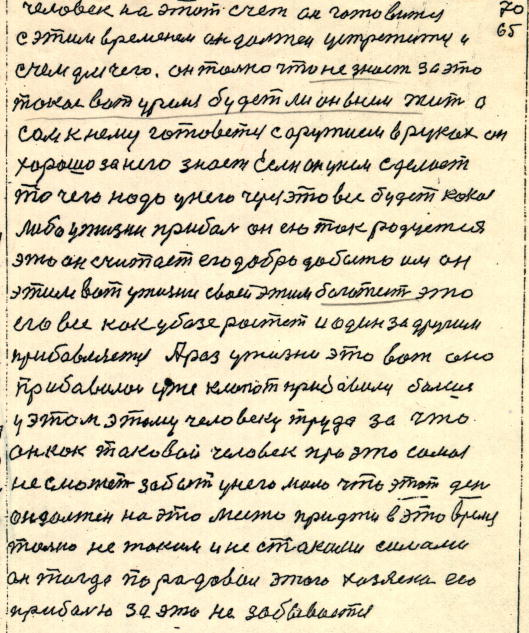 человек на этот счет он готовится 70
с этим временем он должен устретити и 65
с чем для чего. он толко что не знает за это
такое вот время будет ли он в нем жит а
сам к нему готовется с оружием в руках он
хорошо за него знает Если он у нем сделает
то чего надо у него через это все будет какоя
либо у жизни прибал он ею так радуется
это он считает его добро добыто им он
этим вот у жизни своей этим богатеит это
его все как у базе ростет и один за другим
прибавляется А раз у жизни это вот оно
прибавилос уже клопот прибавили болше
у этом этому человеку труда за что
он как таковой человек про это самое
не сможет забыт у него мало что этот ден
он должен на это место придти в это время
толко не таким и не с таками силами
он тогда порадовал этого хозяена его
прибалю за это не забывается